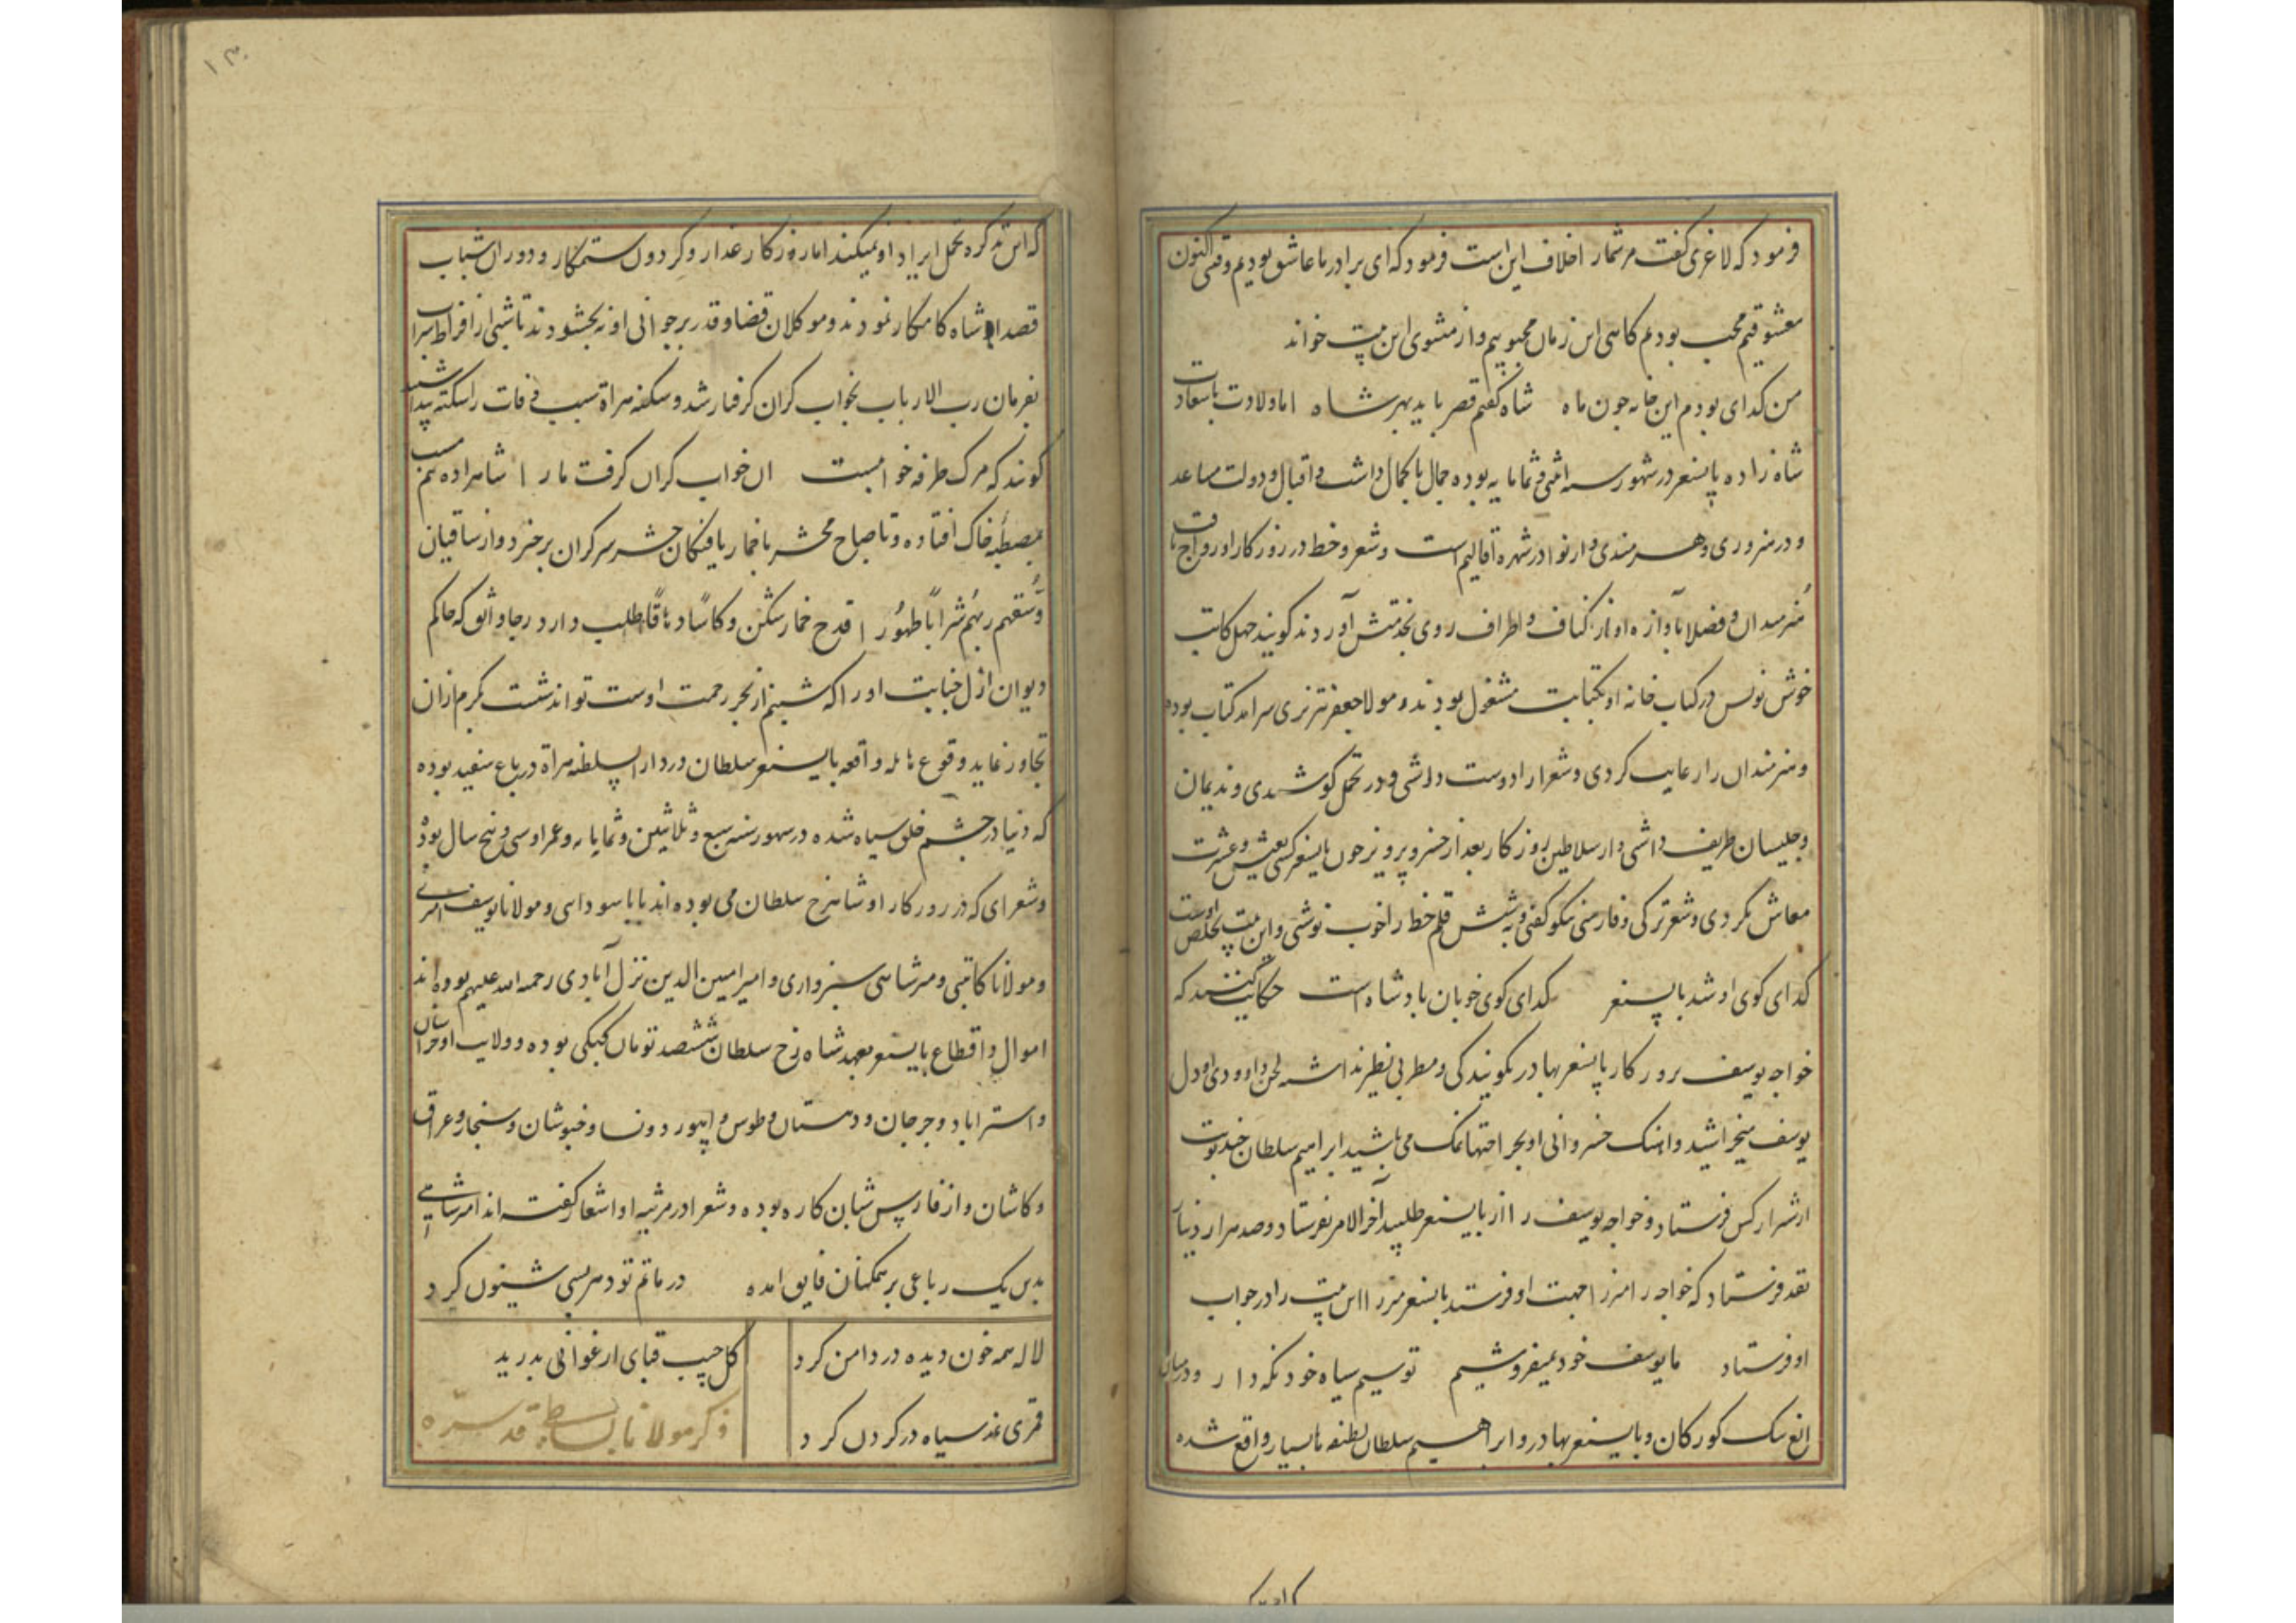 فرمود که لاغری گفت مر شمار اخلاف این است فرمود که ای برادر ما عاشق بودیم وقتی اکنون
معشوقیم محب بودیم کاهی این زمان محبوبیم و از مثنوی این بیت خواند
من کدای بودم این خانه چون ماه شاه کفتم قصر باید بهر شاه اما ولادت با سعادت
شاه زاده بایسنغر در شهور سنه اثنی ثمانمایه بوده جمال با کمال داشت و اقبال و دولت مساعد
و هنرمندی و شهره اقالیم است و شعر و خط در روزکار او رواج یافت
هنرمندان و فضلا بآوازه او از اکناف و اطراف روی بخدمتش آوردند کویند چهل کاتب
خوش نویس در کتاب خانه او بکتابت مشغول بودند و مولانا جعفر تبریزی سرآمد کتاب بوده
و هنرمندان را رعایت کردی و شعرا را دوست داشتی و در تجمل کوشیدی و ندیمان
و جلیسان ظریف داشتی و از سلاطین روزکار بعد از خسرو پرویز چون بایسنغر کسی بعیش و عشرت
معاش نکردی و شعر ترکی و فارسی نیکو کفتی و به شش قلم خط را خوب نوشتی و این بیت تخلص اوست
کدای کوی او شد بایسنغر کدای کوی خوبان بادشاه است حکایت کنند که
خواجه یوسف بروزکار بایسنغر بهادر بکویندکی و مطربی نظیر نداشت لحن داوودی او دل
یوسف میخراشید و آهنک خسروانی او بجراحتها نمک می پاشید ابراهیم سلطان چند نوبت
از شیراز کس فرستاد و خواجه یوسف را از بایسنغر طلبید آخر الامر بفرستاد و صد هزار دینار
نقد فرستاد که خواجه را میرزا جهت او فرستد بایسنغر میرزا این بیت را در جواب
او فرستاد ما یوسف خود نمیفروشیم تو سیم سیاه خود نکه دار و در میان
الغ بیک کورکان و بایسنغر بهادر و ابراهیم سلطان لطیفه بسیار واقع شده
۱۳۰
که این تذکره تحمل ایراد او نمیکند اما روزکار غدار و کردون ستمکار و دوران شباب
قصد شاه کامکار نمودند و موکلان قضا و قدر بر جوانی او نه بخشودند تا شبی از افراط شراب
بفرمان رب الارباب بخواب کران کرفتار شد و سکنه هراة سبب وفات را سکته پنداشتند
کویند که مرک طرفه خوابیست آن خواب کران کرفت ما را شاهزاده هم
بمصطبه خاک افتاده و تا صباح محشر با خمار یافتکان حشر سرکران برخیزد و از ساقیان
وسقیهم ربهم شرابا طهورا قدح خمارشکن و کاسا دهاقا طلب دارد رجا واثق که حاکم
دیوان ازل جنایت او را که شبنم از بحر رحمت اوست تواند شست بکرم از آن
تجاوز نماید وقوع هایله واقعه بایسنغر سلطان در دار السلطنه هراة در باغ سفید بوده
که دنیا در چشم خلق سیاه شده در شهور سنه سبع و ثلاثین و ثمانمایه و عمر او سی و پنج سال بود
و شعرای که در روزکار او شاهرخ سلطان می بوده اند بابا سودایی و مولانا یوسف امیری
و مولانا کاتبی و میر شاهی سبزواری و امیر امین الدین نزل آبادی رحمه الله علیهم بوده اند
اموال و اقطاع بایسنغر بعهد شاه رخ سلطان ششصد تومان کپکی بوده و ولایت او خراسان
و استراباد و جرجان و دهستان و طوس و ابیورد و نسا و خبوشان و سنجار و عراق
و کاشان و از فارس شبان کاره بوده و شعرا در مرثیه او اشعار کفته اند امیر شاهی
بدین یک رباعی بر همکنان فایق آمده در ماتم تو دهر بسی شیون کرد
لاله همه خون دیده در دامن کرد کل جیب قبای ارغوانی بدرید
قمری نمد سیاه در کردن کرد ذکر مولانا قدس سره